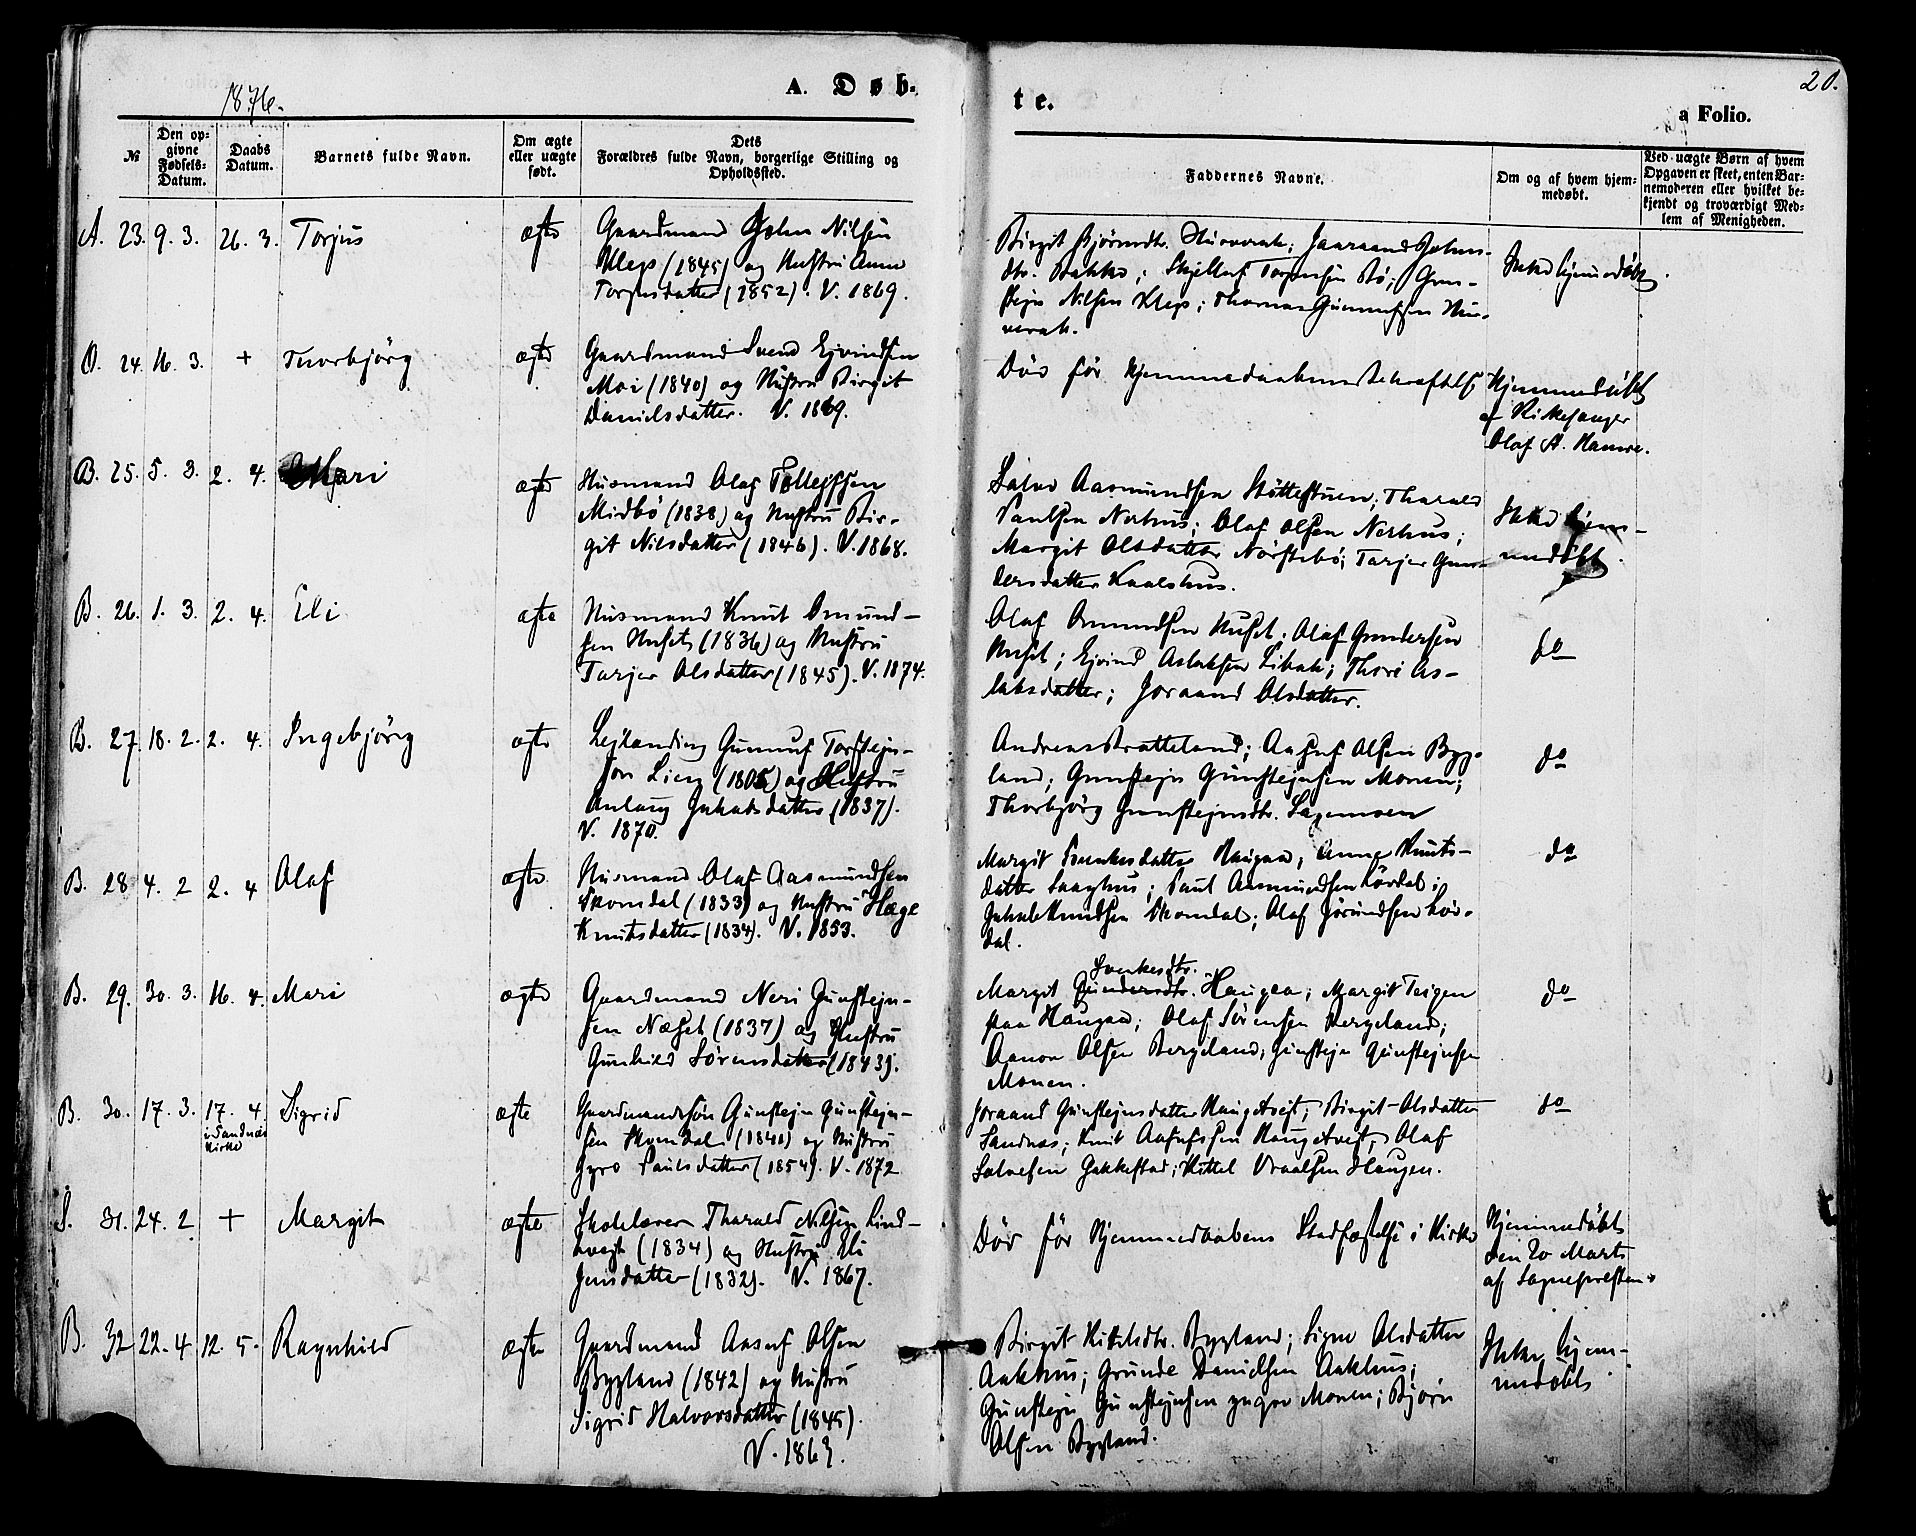 1876.
A. Døb-
te.
20.
a Folio.
№
Den op-
givne
Fødsels-
Datum.
Daabs
Datum.
Barnets fulde Navn.
Om ægte
eller uægte
født.
Dets
Forældres fulde Navn, borgerlige Stilling og
Opholdssted.
Faddernes Navne.
Om og af hvem hjem-
medøbt.
Ved uægte Børn af hvem
Opgaven er skeet, enten Bar-
nemoderen eller hvilket be-
kjendt og troværdigt Med-
lem af Menigheden.
A. 23. 9. 3. 26. 3. Torjus ægte
Gaardmand John Nilsen
Kleps (1845) og Hustru Anne
Torjusdatter (1852). V. 1869.
Birgit Bjørnsdtr. Hisverak; Jaraand Johns-
dtr. Bakke; Skjellaf Torjusen Bø; Gun-
stejn Nilsen Kleps; Thomas Gunnufsen His-
verak.
Ikke hjemmedøbt.
O. 24. 16. 3. + Thorbjörg ægte
Gaardmand Svend Ejvindsen
Moi (1840) og Hustru Birgit
Danielsdatter. V. 1869.
Döde för Hjemmedaabens Bekræftelse
Hjemmedöbt
af Kirkesanger
Olaf A. Hamre.
B. 25. 5. 3. 2. 4. Mari ægte
Husmand Olaf Tollejfsen
Midbö (1838) og Hustru Bir-
git Nilsdatter (1846). V. 1868.
Salve Aasmundsen Stöttestuen; Tharald
Paulsen Nerhus; Olaf Olsen Nerhus;
Margit Olsdatter Nörstebö; Tarjer Gun-
dersdatter Kaaleshus.
Ikke hjem-
medøbt.
B. 26. 1. 3. 2. 4. Eli ægte
Husmand Knut Omund-
sen Huset (1836) og Hustru
Tarjer Olsdatter (1845). V. 1874.
Olaf Omundsen Huset; Olaf Gundersen
Huset; Ejvind Aslaksen Libak; Thore As-
laksdatter; Joraand Olsdatter.
do
B. 27 18. 2. 2. 4. Ingebjörg ægte
Lejlænding Gunnuf Torstejn-
son Lien (1805) og Hustru
Anlaug Jakobsdatter (1837).
V. 1870.
Andreas Bratteland; Aasuf Olsen Byg-
land; Gunstejn Gunstejnsen Monen;
Thorbjörg Gunstejnsdtr. Sagemoen
do
B. 28 4. 2 2. 4 Olaf ægte
Husmand Olaf Aasmundsen
Skomdal (1833) og Hustru Hæge
Knutsdatter (1834). V. 1853.
Margit Svenkesdatter Haugaa; Anne Knuts-
datter Saaghus; Paul Aasmundsen Lövdal;
Jakob Knudsen Skomdal; Olaf Jörundsen Löv-
dal.
do
B. 29. 30. 3. 16. 4. Mari ægte
Gaardmand Neri Gunstejn-
sen Næset (1837) og Hustru
Gunhild Sørensdatter (1843).
Svenkesdtr.
Margit Gundersdtr. Haugaa; Margit Teigen
paa Haugaa; Olaf Sörensen Bergeland;
Aanon Olsen Bergeland; Gunstejn Gunstejnsen
Monen.
do
B. 30. 17. 3. 17. 4. Sigrid ægte
i Sandnæs
Kirke
Gaardmandssön Gunstejn Gunstejn-
sen Skomdal (1840) og Hustru
Gyro Paulsdatter (1854). V. 1872
Joraand Gunstejnsdatter Haugetvejt; Birgit Olsdatter
Sandnæs; Knut Aasufssen Haugetvejt; Olaf
Salvesen Jakkestad; Kittel Vraalsen Haugen.
do
S. 31. 24. 2 + Margit ægte
Skolelærer Tharald Nilsen Lind-
tvejt (1834) og Hustru Eli
Jensdatter (1832). V. 1867.
Döde för Hjemmedaabens Stadfæstelse i Kirke
Hjemmedöbt
den 20 Marts
af Sognepresten.
B. 32 22. 4 12. 5. Ragnhild ægte
Gaardmand Aasuf Olsen
Bygland (1842) og Hustru
Sigrid Halvorsdatter (1845).
V. 1863.
Birgit Kittelsdtr. Bygland; Signe Olsdatter
Aakhus; Grunde Danielsen Aakhus;
Gunstejn Gunstejnsen yngre Monen; Bjørn
Olsen Bygland.
Ikke hjem-
medöbt.